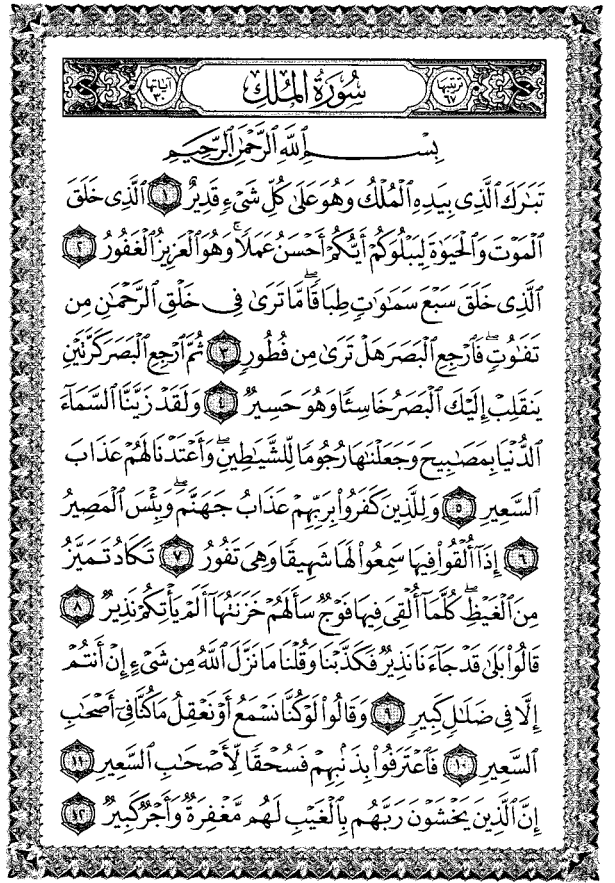 ترتيبها ٦٧ سُورَةُ المُلكِ آياتها ٣٠
بِسْمِ ٱللَّهِ ٱلرَّحْمَٰنِ ٱلرَّحِيمِ
تَبَٰرَكَ ٱلَّذِى بِيَدِهِ ٱلْمُلْكُ وَهُوَ عَلَىٰ كُلِّ شَىْءٍ قَدِيرٌ ١ ٱلَّذِى خَلَقَ
ٱلْمَوْتَ وَٱلْحَيَوٰةَ لِيَبْلُوَكُمْ أَيُّكُمْ أَحْسَنُ عَمَلًا ۚ وَهُوَ ٱلْعَزِيزُ ٱلْغَفُورُ ٢
ٱلَّذِى خَلَقَ سَبْعَ سَمَٰوَٰتٍ طِبَاقًا ۖ مَّا تَرَىٰ فِى خَلْقِ ٱلرَّحْمَٰنِ مِن
تَفَٰوُتٍ ۖ فَٱرْجِعِ ٱلْبَصَرَ هَلْ تَرَىٰ مِن فُطُورٍ ٣ ثُمَّ ٱرْجِعِ ٱلْبَصَرَ كَرَّتَيْنِ
يَنقَلِبْ إِلَيْكَ ٱلْبَصَرُ خَاسِئًا وَهُوَ حَسِيرٌ ٤ وَلَقَدْ زَيَّنَّا ٱلسَّمَآءَ
ٱلدُّنْيَا بِمَصَٰبِيحَ وَجَعَلْنَٰهَا رُجُومًا لِّلشَّيَٰطِينِ ۖ وَأَعْتَدْنَا لَهُمْ عَذَابَ
ٱلسَّعِيرِ ٥ وَلِلَّذِينَ كَفَرُوا۟ بِرَبِّهِمْ عَذَابُ جَهَنَّمَ ۖ وَبِئْسَ ٱلْمَصِيرُ
٦ إِذَآ أُلْقُوا۟ فِيهَا سَمِعُوا۟ لَهَا شَهِيقًا وَهِىَ تَفُورُ ٧ تَكَادُ تَمَيَّزُ
مِنَ ٱلْغَيْظِ ۖ كُلَّمَآ أُلْقِىَ فِيهَا فَوْجٌ سَأَلَهُمْ خَزَنَتُهَآ أَلَمْ يَأْتِكُمْ نَذِيرٌ ٨
قَالُوا۟ بَلَىٰ قَدْ جَآءَنَا نَذِيرٌ فَكَذَّبْنَا وَقُلْنَا مَا نَزَّلَ ٱللَّهُ مِن شَىْءٍ إِنْ أَنتُمْ
إِلَّا فِى ضَلَٰلٍ كَبِيرٍ ٩ وَقَالُوا۟ لَوْ كُنَّا نَسْمَعُ أَوْ نَعْقِلُ مَا كُنَّا فِىٓ أَصْحَٰبِ
ٱلسَّعِيرِ ١٠ فَٱعْتَرَفُوا۟ بِذَنۢبِهِمْ فَسُحْقًا لِّأَصْحَٰبِ ٱلسَّعِيرِ ١١
إِنَّ ٱلَّذِينَ يَخْشَوْنَ رَبَّهُم بِٱلْغَيْبِ لَهُم مَّغْفِرَةٌ وَأَجْرٌ كَبِيرٌ ١٢